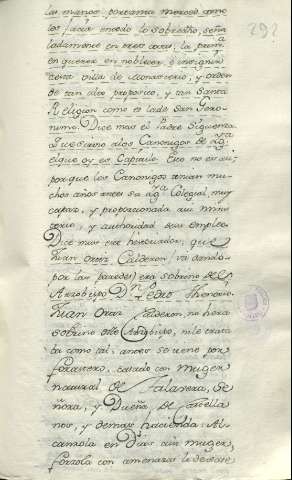 292
las manos por tanta merced como
les hacia en todo lo sobre dho, seña
ladamente en tres cosas, la prim.a
en querer en noblecer, è insignir
esta Villa de Monasterio, y orden
de tan alto proposito, y tan Santa
Religion como es la de San Gero-
nimo. Dice mas el Padre Siguenza
los Canonigos de Ig.a
el que oy es Capitulo. Esto no es asi,
porque los Canonigos tenian mu-
chos años antes su Ig.a Colegial, muy
capaz, y proporcionada a su minis
terio, y authoridad de su empleo.
Dice mas este historiador, que
Juan Ortiz Calderon, (va dando
por las paredes) era sobrino del
Arzobispo Dn. Pedro Thenorio.
Juan Ortiz Calderon, no hera
sobrino del Arzobispo, ni le trata
ba como tal, antes se viene por
forastero, casado con muger
natural de Talavera, Se
ñora, y Dueña de Castella
nos, y demas hacienda
en Dias a su muger,
forzola con amenazas le